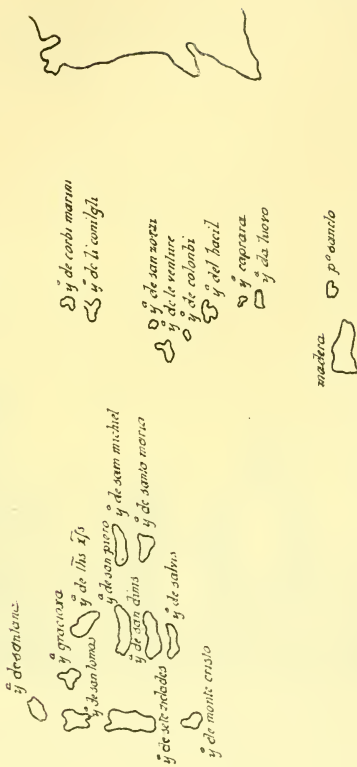 yª de santana
yª graciosa
yª de san tomas
yª de ihs xps
yª de san piero
yª de sam michiel
yª de san dinis
yª de santo morio
yª de salvis
yª de sete zidades
yª de monte cristo
yª de corbi marini
yª de li conilgli
yª de san zorzi
yª de le venture
yª de colonbi
yª del bacil
yª caprara
yª da luovo
madera
pº sancto